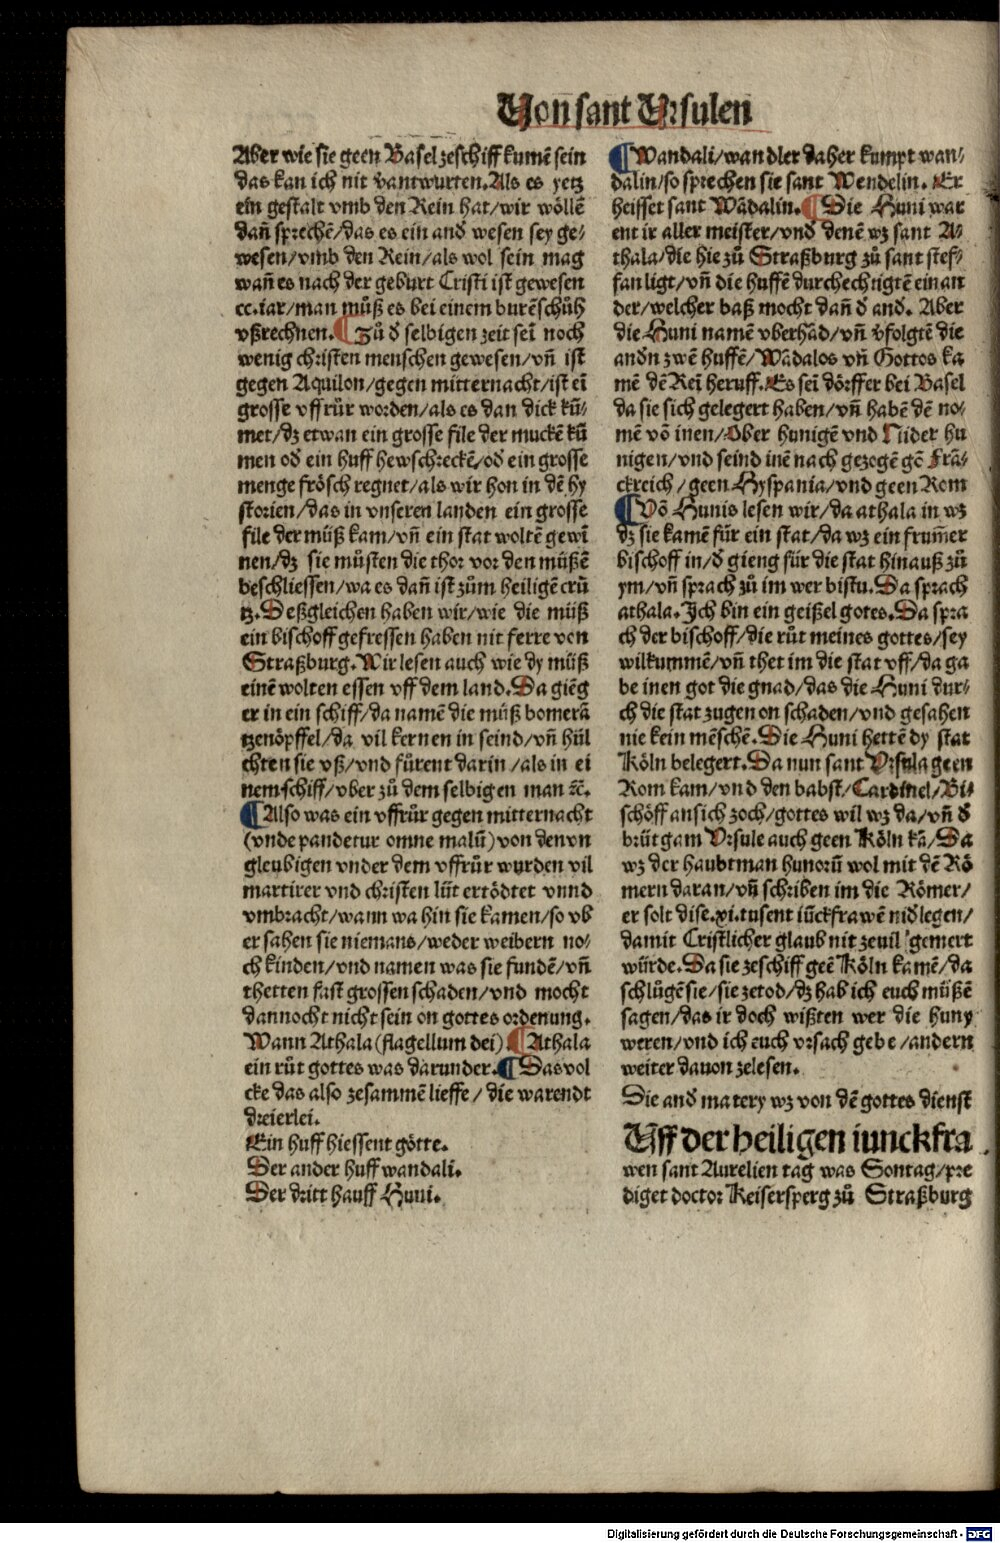 Von sant Vrsulen
Aber wie sie geen Basel zeschiff kumē sein
das kan ich nit v̄antwurten. Als es yetz
ein gestalt vmb den Rein hat/wir wöllē
dañ sprechē/das es ein and̄ wesen sey ge⸗
wesen/vmb den Rein/als wol sein mag
wañ es nach der geburt Cristi ist gewesen
cc. iar/man můß es bei einem burēschůh
vßrechnen. ¶ Zů d̄ selbigen zeit seī noch
wenig christen menschen gewesen/vñ ist
gegen Aquilon/gegen mitternacht/ist eī
grosse vffrůr worden/als es dan dick kū⸗
met/dz etwan ein grosse file der muckē kū
men od̄ ein huff hewschreckē/od̄ ein grosse
menge frösch regnet/als wir hon in dē hy
storien/das in vnseren landen ein grosse
file der müß kam/vñ ein stat woltē gewī
nen/dz sie můsten die thor vor den müßē
beschliessen/wa es dañ ist zům heiligē crü
tz. Deßgleichen haben wir/wie die müß
ein bischoff gefressen haben nit ferre von
Straßburg. Wir lesen auch wie dy müß
einē wolten essen vff dem land. Da giēg
er in ein schiff/da namē die müß bomerā
tzenöpffel/da vil kernen in seind/vñ hül
chten sie vß/vnd fůrent darin/als in ei
nem schiff/vber zů dem selbigen man ⁊c.
¶ Also was ein vffrůr gegen mitternacht
(vnde pandetur omne malū) von den vn
gleubigen vnder dem vffrůr wurden vil
martirer vnd christen lüt ertödtet vnnd
vmbracht/wann wa hin sie kamen/so vb
er sahen sie niemans/weder weibern no⸗
ch kinden/vnd namen was sie fundē/vñ
thetten fast grossen schaden/vnd mocht
dannocht nicht sein on gottes ordenung.
Wann Athala (flagellum dei) ¶ Athala
ein růt gottes was darunder. ¶ Das vol
cke das also zesammē lieffe/die warendt
dreierlei.
Ein huff hiessent götte.
Der ander huff wandali.
Der dritt hauff Huni.
¶ Wandali/wandler daher kumpt wan⸗
dalin/so sprechen sie sant Wendelin. Er
heisset sant Wādalin. ¶ Die Huni war
ent ir aller meister/vnd denē wz sant A⸗
thala/die hie zů Straßburg zů sant stef⸗
fan ligt/vñ die huffē durchechtigtē ein an
der/welcher baß mocht dañ d̄ and̄. Aber
die Huni namē vberhād/vñ v̄folgtē die
andn̄ zwē huffē/Wādalos vñ Gottos ka
mē dē Reī heruff. Es seī dörffer bei Basel
da sie sich gelegert haben/vñ habē dē no⸗
mē vō inen/Ober hunigē vnd Nider hu
nigen/vnd seind inē nach gezogē gē Frā⸗
ckreich/geen Hyspania/vnd geen Rom
¶ Vō Hunis lesen wir/da athala in wz
dz sie kamē für ein stat/da wz ein frum̄er
bischoff in/d̄ gieng für die stat hinauß zů
ym/vñ sprach zů im wer bistu. Da sprach
athala. Ich bin ein geißel gotes. Da spra
ch der bischoff/die růt meines gottes/sey
wilkummē/vñ thet im die stat vff/da ga
be inen got die gnad/das die Huni dur⸗
ch die stat zugen on schaden/vnd gesahen
nie kein mēschē. Die Huni hettē dy stat
Köln belegert. Da nun sant Vrsula geen
Rom kam/vnd den babst/Cardinel/Bi⸗
schöff an sich zoch/gottes wil wz da/vñ d̄
brütgam Vrsule auch geen Köln kā/Da
wz der haubtman hunorū wol mit dē Rö
mern daran/vñ schriben im die Römer/
er solt dise .xi. tusent iūckfrawē nid̄legen/
damit Cristlicher glaub nit zeuil gemert
würde. Da sie zeschiff geē Köln kamē/da
schlůgē sie/sie zetod/dz hab ich euch müßē
sagen/das ir doch wißten wer die huny
weren/vnd ich euch vrsach gebe/andern
weiter dauon zelesen.
Die and̄ matery wz von dē gottes dienst
Vff der heiligen iunckfra
wen sant Aurelien tag was Sontag/pre
diget doctor Keisersperg zů Straßburg
Digitalisierung gefördert durch die Deutsche Forschungsgemeinschaft - DFG